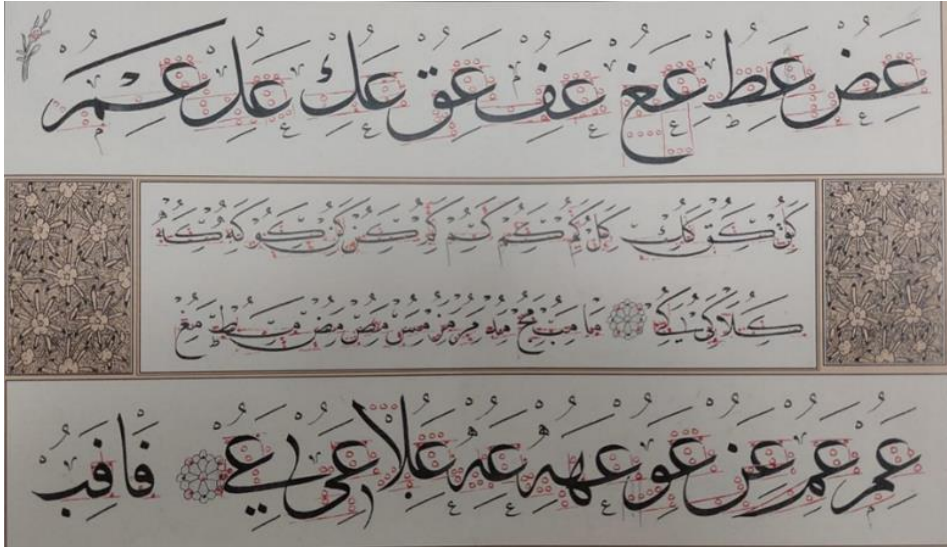 عض عط عغ عف عق عك عل عم
كق كق كك كل كم كم كم كم كن كن كو كه كه
كلا كي كي ما مب مج مد مر مط مع
عم عم عن عو عهه عه علا عى عي فا فب